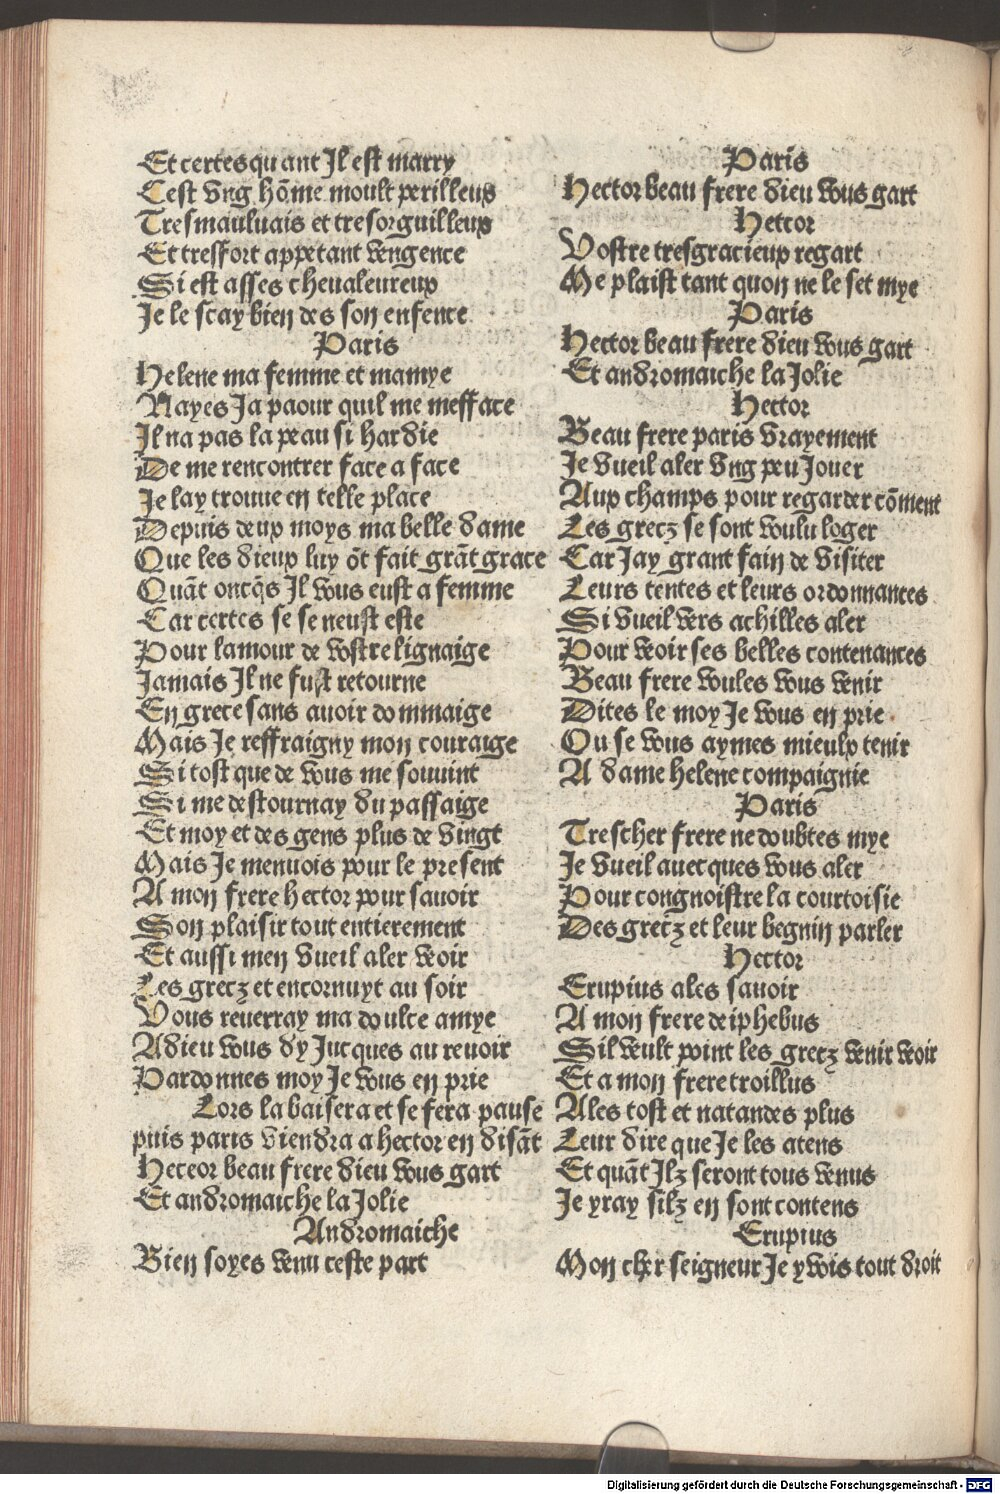 Et certes qu ant Il est marry
Cest vng hõme moult perilleux
Tresmauluais et tresorguilleux
Et tresfort appetant vengence
Si est asses cheualeureux
Je le scay bien des son enfence
Paris
Helene ma femme et mamye
Nayes Ja paour quil me mefface
Il na pas la peau si hardie
De me rencontrer face a face
Je lay trouue en telle place
Depuis deux moys ma belle dame
Que les dieux luy õt fait grãt grace
Quãt oncq̃s Il vous eust a femme
Car certes se se neust este
Pour lamour de vostre lignaige
Jamais Il ne fust retourne
En grece sans auoir dommaige
Mais Je reffraigny mon couraige
Si tost que de vous me souuint
Si me destournay du passaige
Et moy et des gens plus de vingt
Mais Je menuois pour le present
A mon frere hector pour sauoir
Son plaisir tout entierement
Et aussi men vueil aler veoir
Les grecz et encornuyt au soir
Vous reuerray ma doulce amye
Adieu vous dy Jucques au reuoir
Pardonnes moy Je vous en prie
Lors la baisera et se fera pause
puis paris viendra a hector en disãt
Heceor beau frere dieu vous gart
Et andromaiche la Jolie
Andromaiche
Bien soyes venu ceste part
Paris
Hector beau frere dieu vous gart
Hector
Vostre tresgracieux regart
Me plaist tant quon ne le set mye
Paris
Hector beau frere dieu vous gart
Et andromaiche la Jolie
Hector
Beau frere paris vrayement
Je vueil aler vng peu Jouer
Aux champs pour regarder cõment
Les grecz se sont voulu loger
Car Jay grant fain de visiter
Leurs tentes et leurs ordonnances
Si vueil vers achilles aler
Pour veoir ses belles contenances
Beau frere voules vous venir
Dites le moy Je vous en prie
Ou se vous aymes mieulx tenir
A dame helene compaignie
Paris
Trescher frere ne doubtes mye
Je vueil auecques vous aler
Pour congnoistre la courtoisie
Des grecz et leur begnin parler
Hector
Erupius ales sauoir
A mon frere deiphebus
Sil veult point les grecz venir veoir
Et a mon frere troillus
Ales tost et natandes plus
Leur dire que Je les atens
Et quãt Ilz seront tous venus
Je yray silz en sont contens
Erupius
Mon cher seigneur Je y vois tout droit
Digitalisierung gefördert durch die Deutsche Forschungsgemeinschaft - DFG